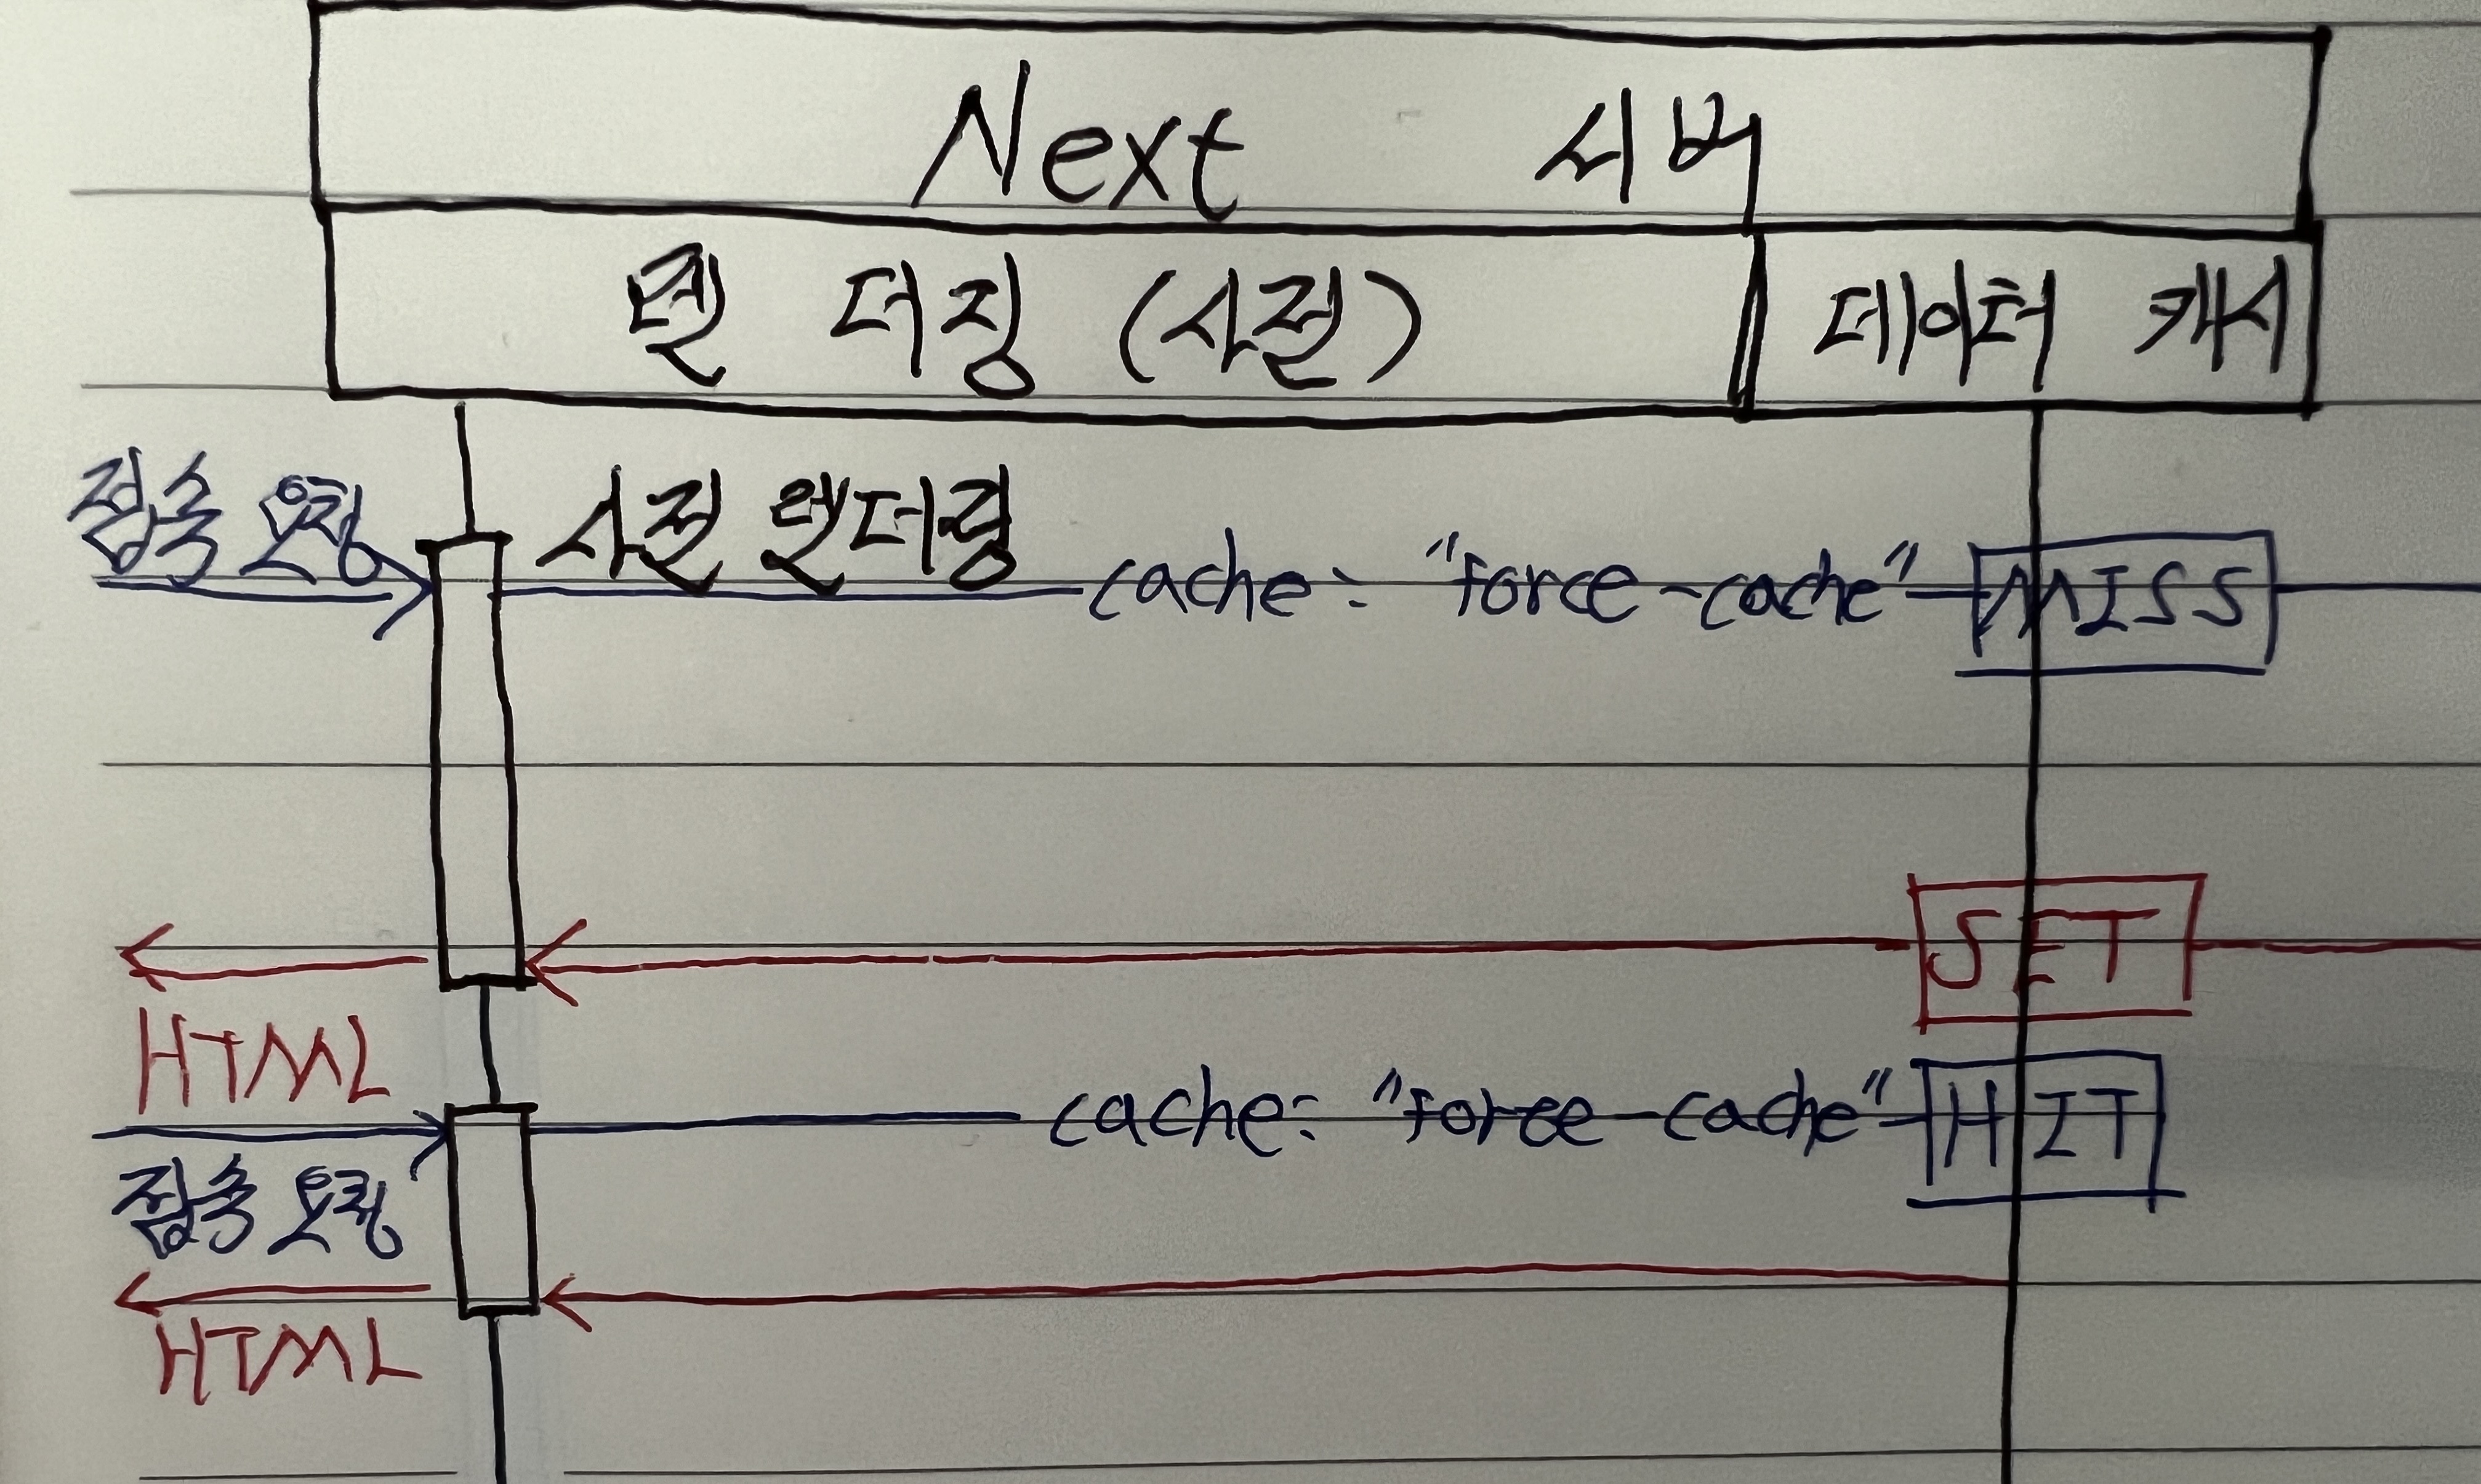 Next 서버
렌더링 (사전)
데이터 캐시
접속 요청
사전 렌더링
cache: "force-cache"
MISS
SET
HTML
cache: "force-cache"
HIT
접속 요청
HTML